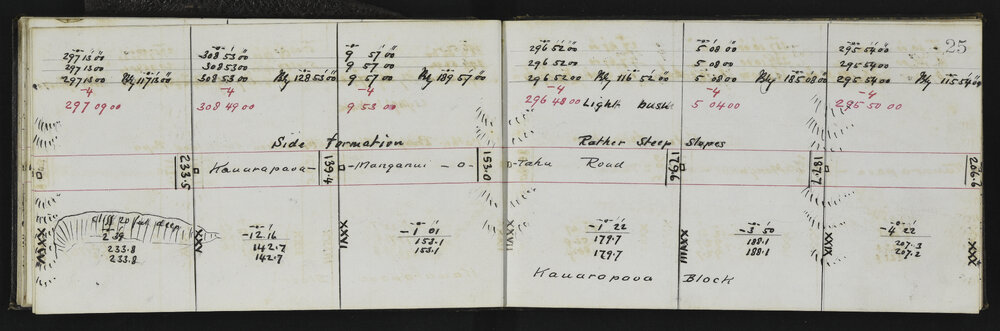 25
297 13 00
297 13 00
297 13 00 Bkg 117 13 00
-4
297 09 00
308 53 00
308 53 00
308 53 00 Bkg 128 53 00
-4
308 49 00
9 57 00
9 57 00
9 57 00 Bkg 189 57 00
-4
9 53 00
296 52 00
296 52 00
296 52 00 Bkg 116 52 00
-4
296 48 00
Light bush
5 08 00
5 08 00
5 08 00 Bkg 185 08 00
-4
5 04 00
295 54 00
295 54 00
295 54 00 Bkg 115 54 00
-4
295 50 00
Side formation
Rather Steep Slopes
233.5
Kauarapaoa - 
139.4
Manganui - o -
153.0
Tahu Road
179.6
187.7
206.6
cliff 20 feet deep
2 39
233.8
233.8
XXV
-12 16
142.7
142.7
XXVI
-1 01
153.1
153.1
XXVII
-1 22
179.7
179.7
XXVIII
-3 50
188.1
188.1
XXIX
-4 22
207.3
207.2
XXX
Kauarapaoa Block